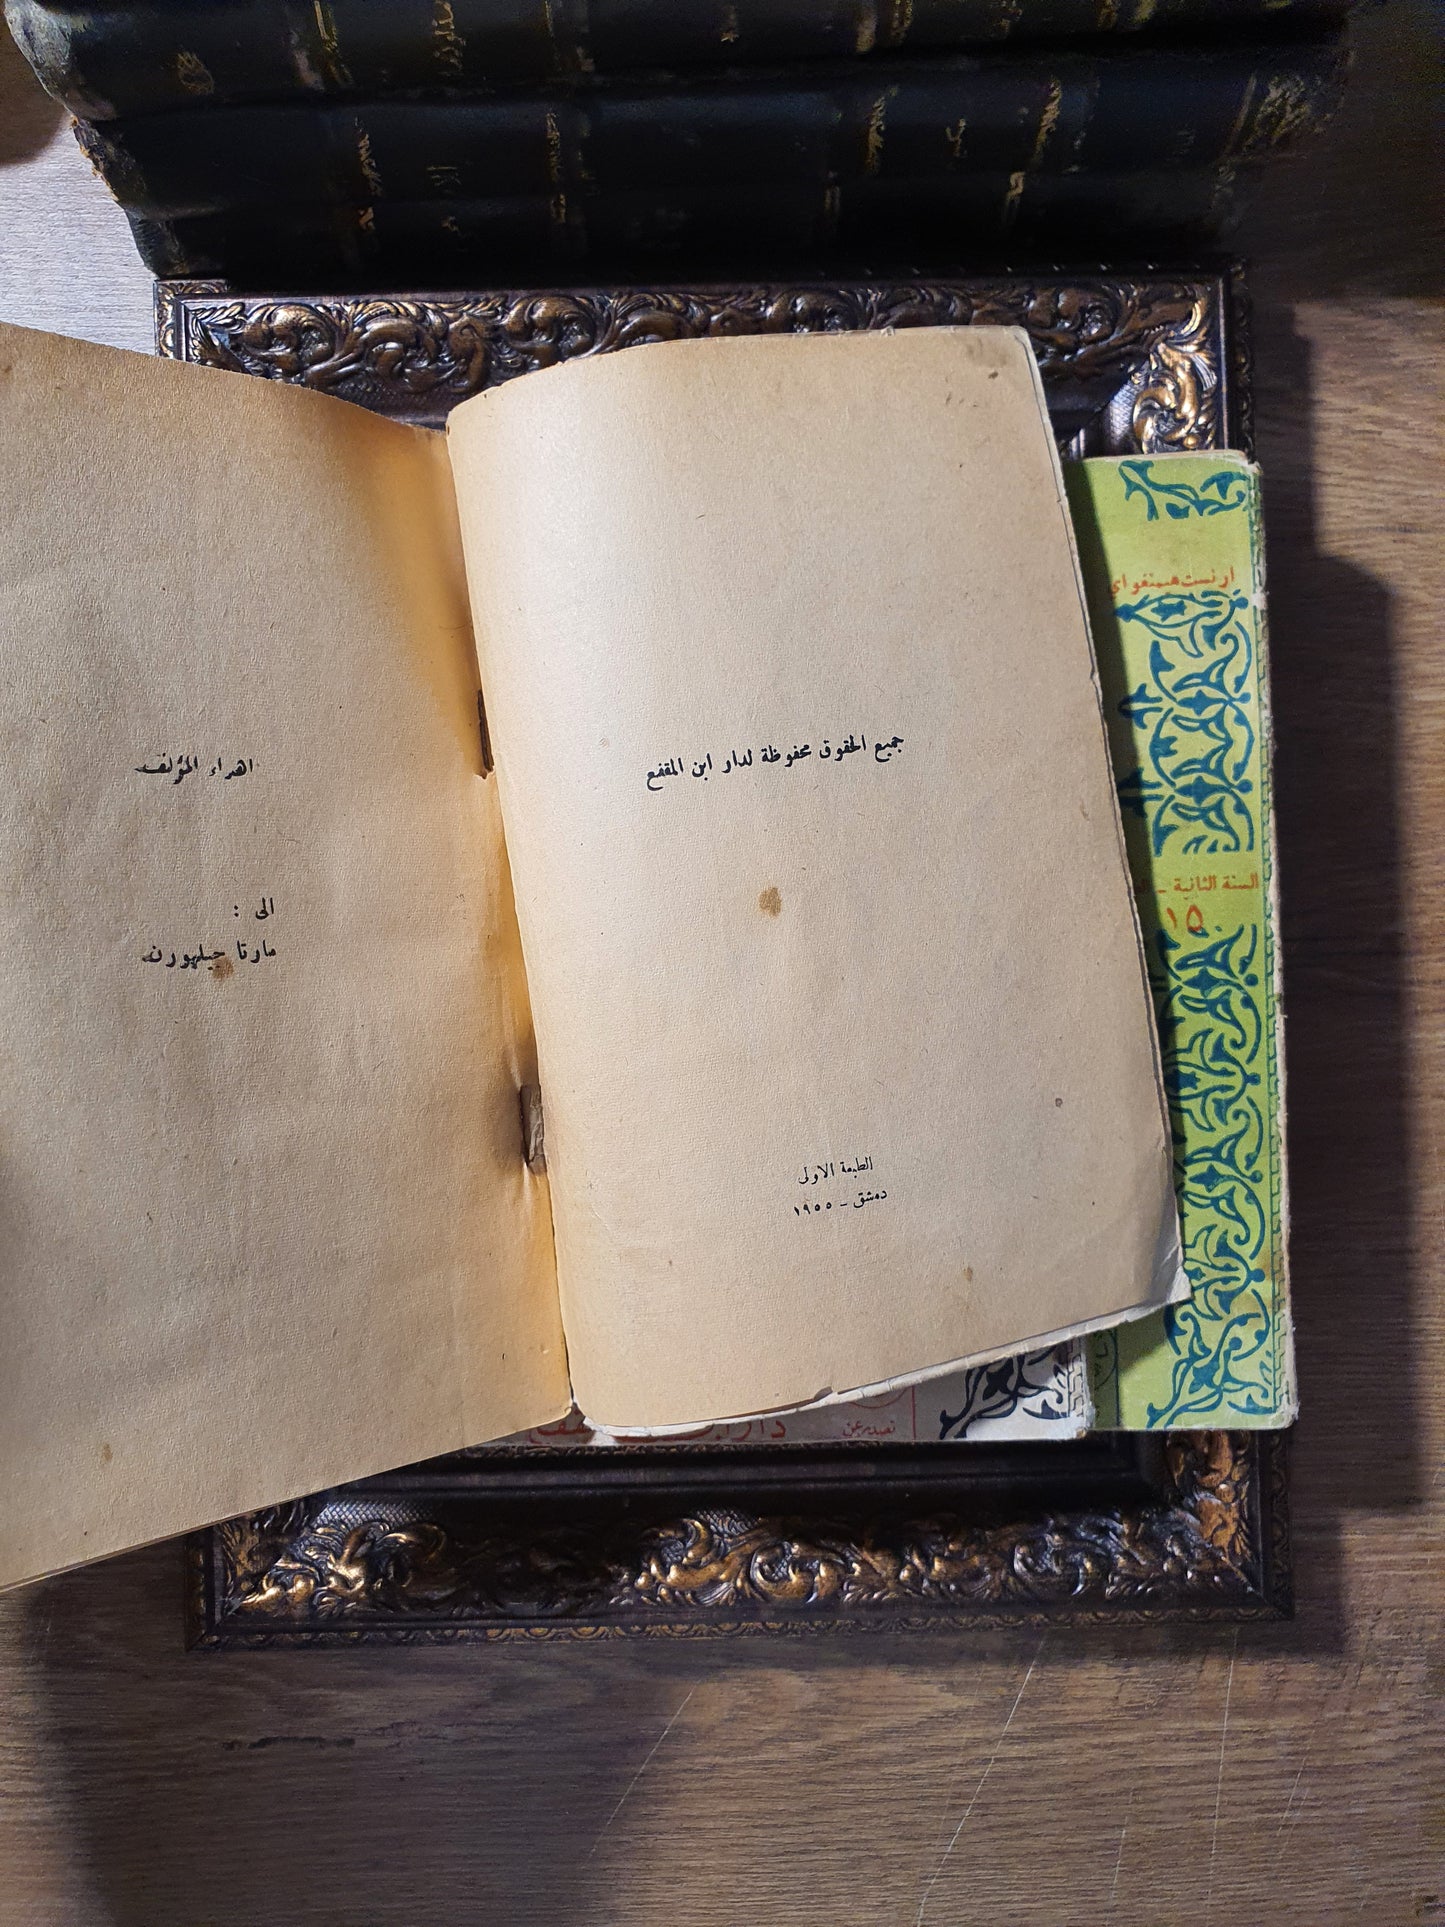 جميع الحقوق محفوظة لدار ابن المقفع
الطبعة الاولى
دمشق - ١٩٥٥
اهداء المؤلف
الى :
مارتا جيلهورن
ارنست همنغواي
السنة الثانية -
١٥
تصدر عن